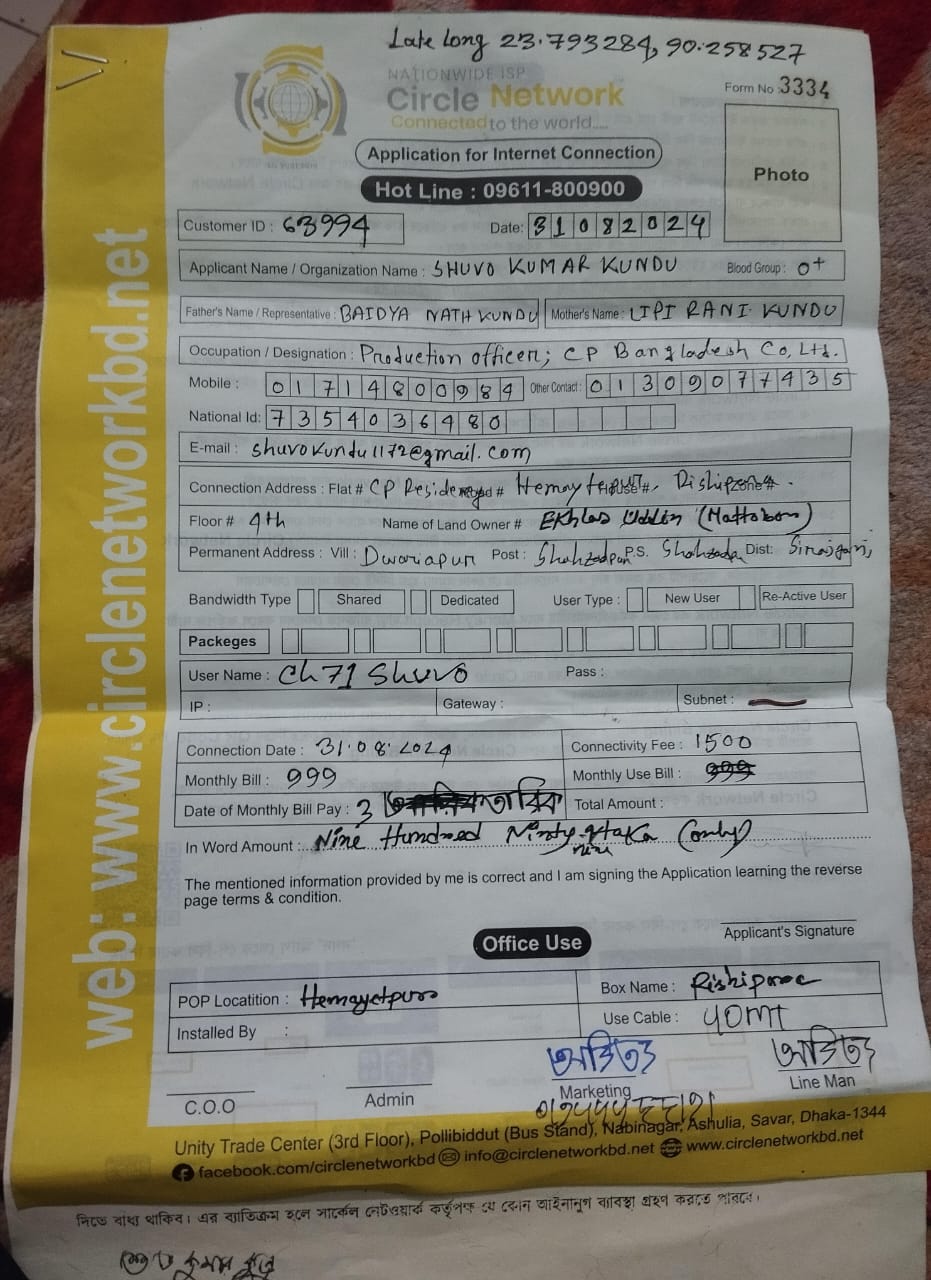 Late Long 23.793284, 90.258527
NATIONWIDE ISP
Circle Network
Connected to the world....
Form No 3334
Application for Internet Connection
Photo
Hot Line : 09611-800900
Customer ID : 63994 Date: 31082024
Applicant Name / Organization Name : SHUVO KUMAR KUNDU Blood Group : O+
Father's Name / Representative : BAIDYA NATH KUNDU Mother's Name : LIPI RANI KUNDU
Occupation / Designation : Production officer; CP Bangladesh Co, Ltd.
Mobile : 01714800984 Other Contact : 01309077435
National Id: 7354036480
E-mail : shuvokundu1172@gmail.com
Connection Address : Flat # CP
Floor # 4th Name of Land Owner # Ekhlas Uddin
Permanent Address : Vill : Dwariapur Post : Shahzadpur P.S. Dist:
Bandwidth Type Shared Dedicated User Type : New User Re-Active User
Packeges
User Name : Ch71 Shuvo Pass :
IP : Gateway : Subnet :
Connection Date : 31.08.2024 Connectivity Fee : 1500
Monthly Bill : 999 Monthly Use Bill : 999
Date of Monthly Bill Pay : 3 তারিখ Total Amount :
In Word Amount : Nine Hundred Ninty nine taka (only)
The mentioned information provided by me is correct and I am signing the Application learning the reverse
page terms & condition.
Applicant's Signature
Office Use
POP Locatition : Hemayetpur Box Name :
Installed By : Use Cable : 40mt
C.O.O Admin Marketing Line Man
Unity Trade Center (3rd Floor), Pollibiddut (Bus Stand), Nabinagar, Ashulia, Savar, Dhaka-1344
facebook.com/circlenetworkbd info@circlenetworkbd.net www.circlenetworkbd.net
web: www.circlenetworkbd.net
দিতে বাধ্য থাকিব। এর ব্যতিক্রম হলে সার্কেল নেটওয়ার্ক কর্তৃপক্ষ যে কোন আইনানুগ ব্যবস্থা গ্রহণ করতে পারবে।